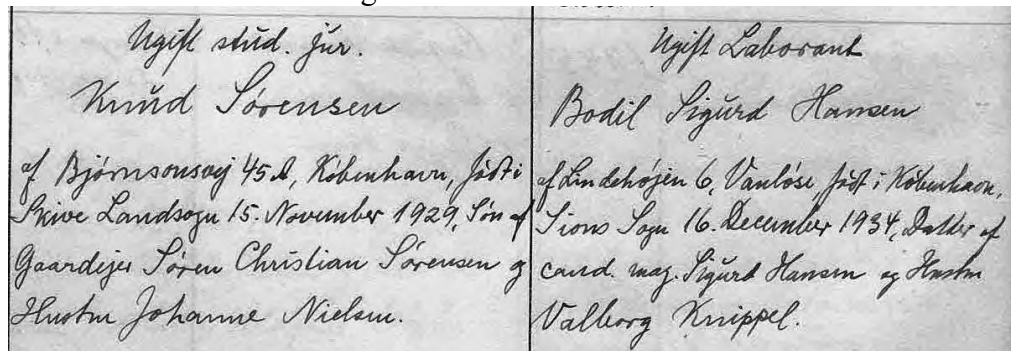 Ugift stud. jur.
Knud Sørensen
af Bjørnsonsvej 45A, København, født i
Skive Landsogn 15. November 1929, Søn af
Gaardejer Søren Christian Sørensen og
Hustru Johanne Nielsen.
Ugift Laborant
Bodil Sigurd Hansen
af Lindehøjen 6, Vanløse født i København,
Sions Sogn 16. December 1934, Datter af
cand. mag. Sigurd Hansen og Hustru
Valborg Knippel.